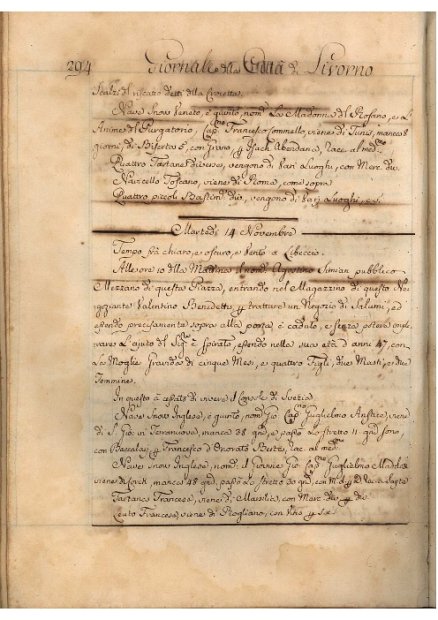 294 Giornale della Città di Livorno
Scalzi del riscato detti della Crocetta.
Nave Snow Veneto, è giunto, nom: La Madonna del Rosario, e L'
Anime del Purgatorio, Cap: Francesco viene di Tunis, manca 8
giorni, di Biserta 5, con Grano, p Isach Abendana, rac. al med:
Quattro Tartane diverse, vengono di vari Luoghi, con Merc: div:
Navicello Toscano, viene di Roma, come sopra
Quattro piccoli Bastim: div: vengono di vari Luoghi,
Martedì 14 Novembre
Tempo frà chiaro, e oscuro, e vento a Libeccio.
All'ore 10 della Mattina il nom: Agostino Simian pubblico
Mezzano di questa Piazza, entrando nel Magazzino di questo Ne
goziante Valentino Benedetti, p trattare un Negozio di Salumi, ed
essendo precisamente sopra alla porta, è caduto, e senza potere
l'ajuto del è spirato, essendo nella sua età d'anni 47, con
La Moglie Gravida di cinque Mesi, e quattro Figli, due Masti, e due
Femmine.
In questo è cessato di vivere il Console di Svezia.
Nave Snow Inglese, è giunto, nom: Gio: Cap: Guglielmo viene
di S. Gio: in Terranuova, manca 38 gni, e passò lo stretto 11 gni sono,
con Baccalà, p Francesco d'Onorato Berte, rac. al med:
Nave Snow Inglese, nom: il Cap: Guglielmo
viene di Cork, manca 48 gni, passò lo stretto 30 gni, con
Tartana Francese, viene di Marsilia, con Merc: div: p div:
Leuto Francese, viene di Rogliano, con Vino p